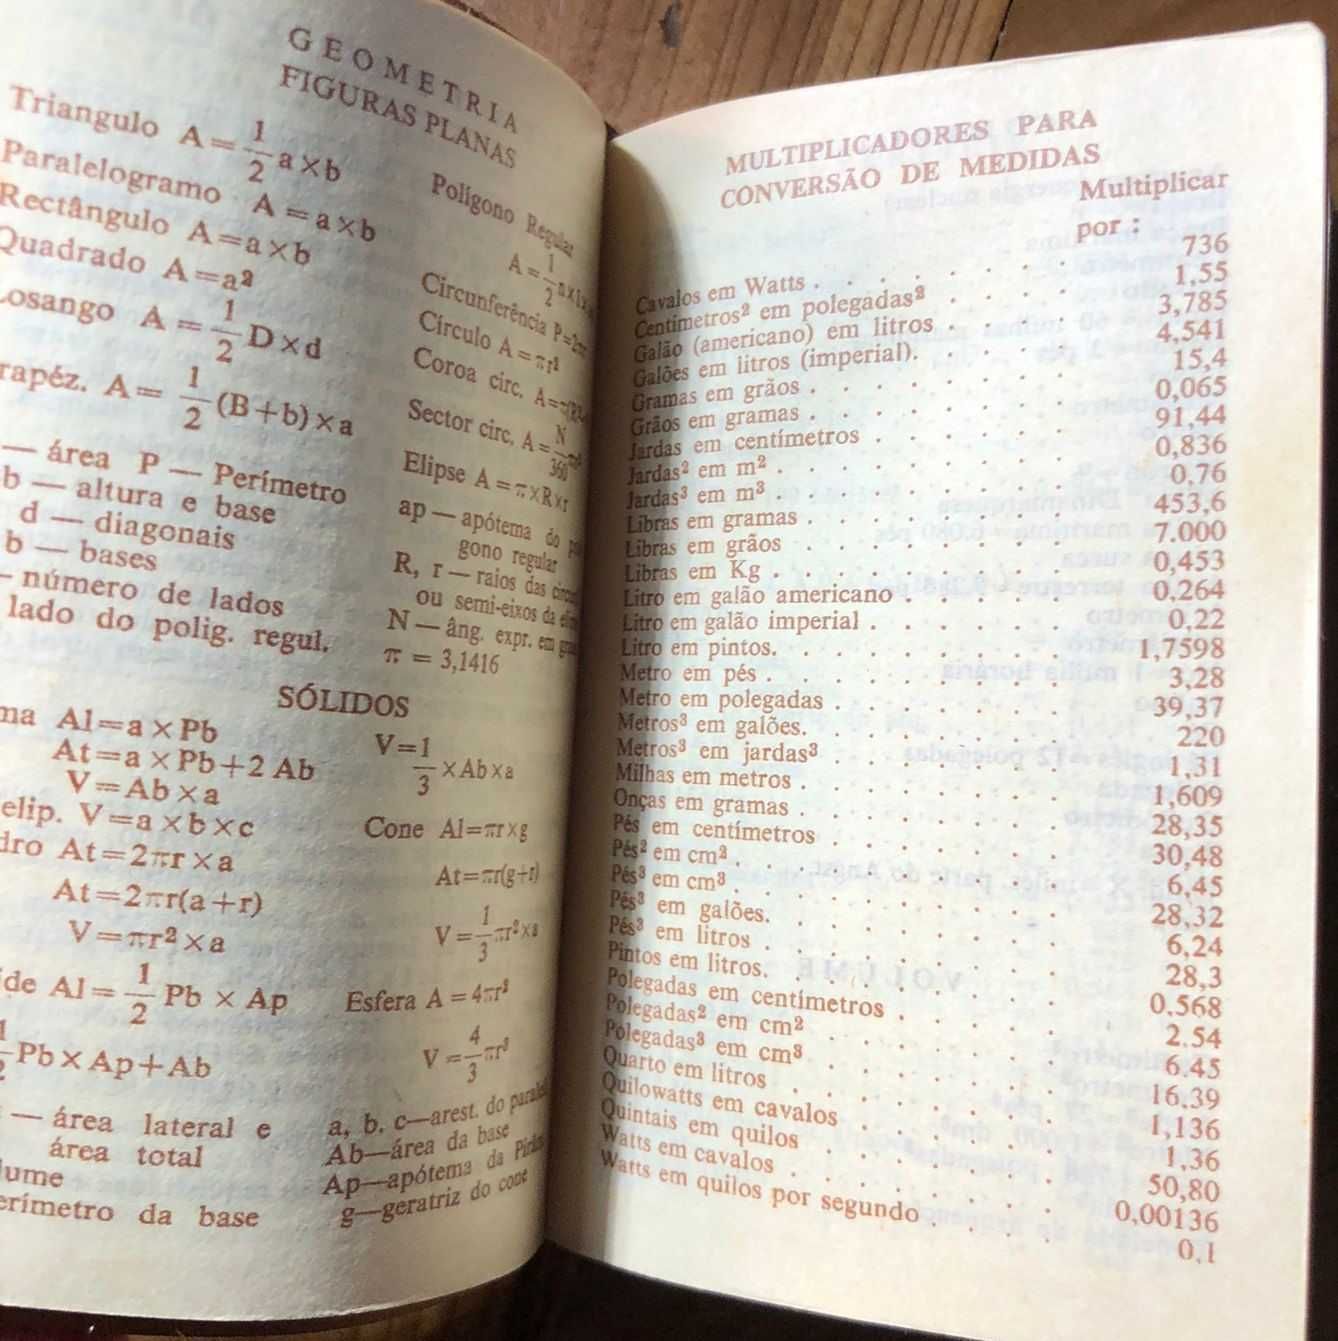 GEOMETRIA
FIGURAS PLANAS
Triangulo A=1/2 a×b
Paralelogramo A=a×b
Rectângulo A=a×b
Quadrado A=a²
Losango A=1/2 D×d
A=1/2 (B+b)×a
— área P — Perímetro
b — altura e base
d — diagonais
b — bases
— número de lados
lado do polig. regul.
Polígono Regular
A=1/2
Circunferência P=2πr
Círculo A=πr²
Coroa circ.
Sector circ. A=N/360
Elipse A=π×R×r
ap — apótema do
gono regular
R, r — raios das
ou semi-eixos da
N — âng. expr. em
π = 3,1416
SÓLIDOS
Al=a×Pb
At=a×Pb+2 Ab
V=Ab×a
elip. V=a×b×c
dro At=2πr×a
At=2πr(a+r)
V=πr²×a
ide Al=1/2 Pb × Ap
1/2 Pb×Ap+Ab
— área lateral e
área total
lume
erímetro da base
V=1/3 ×Ab×a
Cone Al=πr×g
At=πr(g+r)
V=1/3 πr²×a
Esfera A=4πr²
V=4/3 πr³
a, b, c—arest. do
Ab—área da base
Ap—apótema da
g—geratriz do cone
MULTIPLICADORES PARA
CONVERSÃO DE MEDIDAS
Multiplicar
por :
Cavalos em Watts . . . . . . . 736
Centímetros² em polegadas² . . . . 1,55
Galão (americano) em litros . . . . 3,785
Galões em litros (imperial). . . . . 4,541
Gramas em grãos . . . . . . . . 15,4
Grãos em gramas . . . . . . . . 0,065
Jardas em centímetros . . . . . . 91,44
Jardas² em m² . . . . . . . . . 0,836
Jardas³ em m³ . . . . . . . . . 0,76
Libras em gramas . . . . . . . . 453,6
Libras em grãos . . . . . . . . 7.000
Libras em Kg . . . . . . . . . 0,453
Litro em galão americano . . . . . 0,264
Litro em galão imperial . . . . . . 0,22
Litro em pintos. . . . . . . . . 1,7598
Metro em pés . . . . . . . . . 3,28
Metro em polegadas . . . . . . . 39,37
Metros³ em galões. . . . . . . . 220
Metros³ em jardas³ . . . . . . . 1,31
Milhas em metros . . . . . . . . 1,609
Onças em gramas . . . . . . . . 28,35
Pés em centímetros . . . . . . . 30,48
Pés² em cm² . . . . . . . . . . 6,45
Pés³ em cm³ . . . . . . . . . . 28,32
Pés³ em galões. . . . . . . . . 6,24
Pés³ em litros . . . . . . . . . 28,3
Pintos em litros. . . . . . . . . 0,568
Polegadas em centímetros . . . . . 2.54
Polegadas² em cm² . . . . . . . 6.45
Polegadas³ em cm³ . . . . . . . 16,39
Quarto em litros . . . . . . . . 1,136
Quilowatts em cavalos . . . . . . 1,36
Quintais em quilos . . . . . . . 50,80
Watts em cavalos . . . . . . . . 0,00136
Watts em quilos por segundo . . . . 0,1